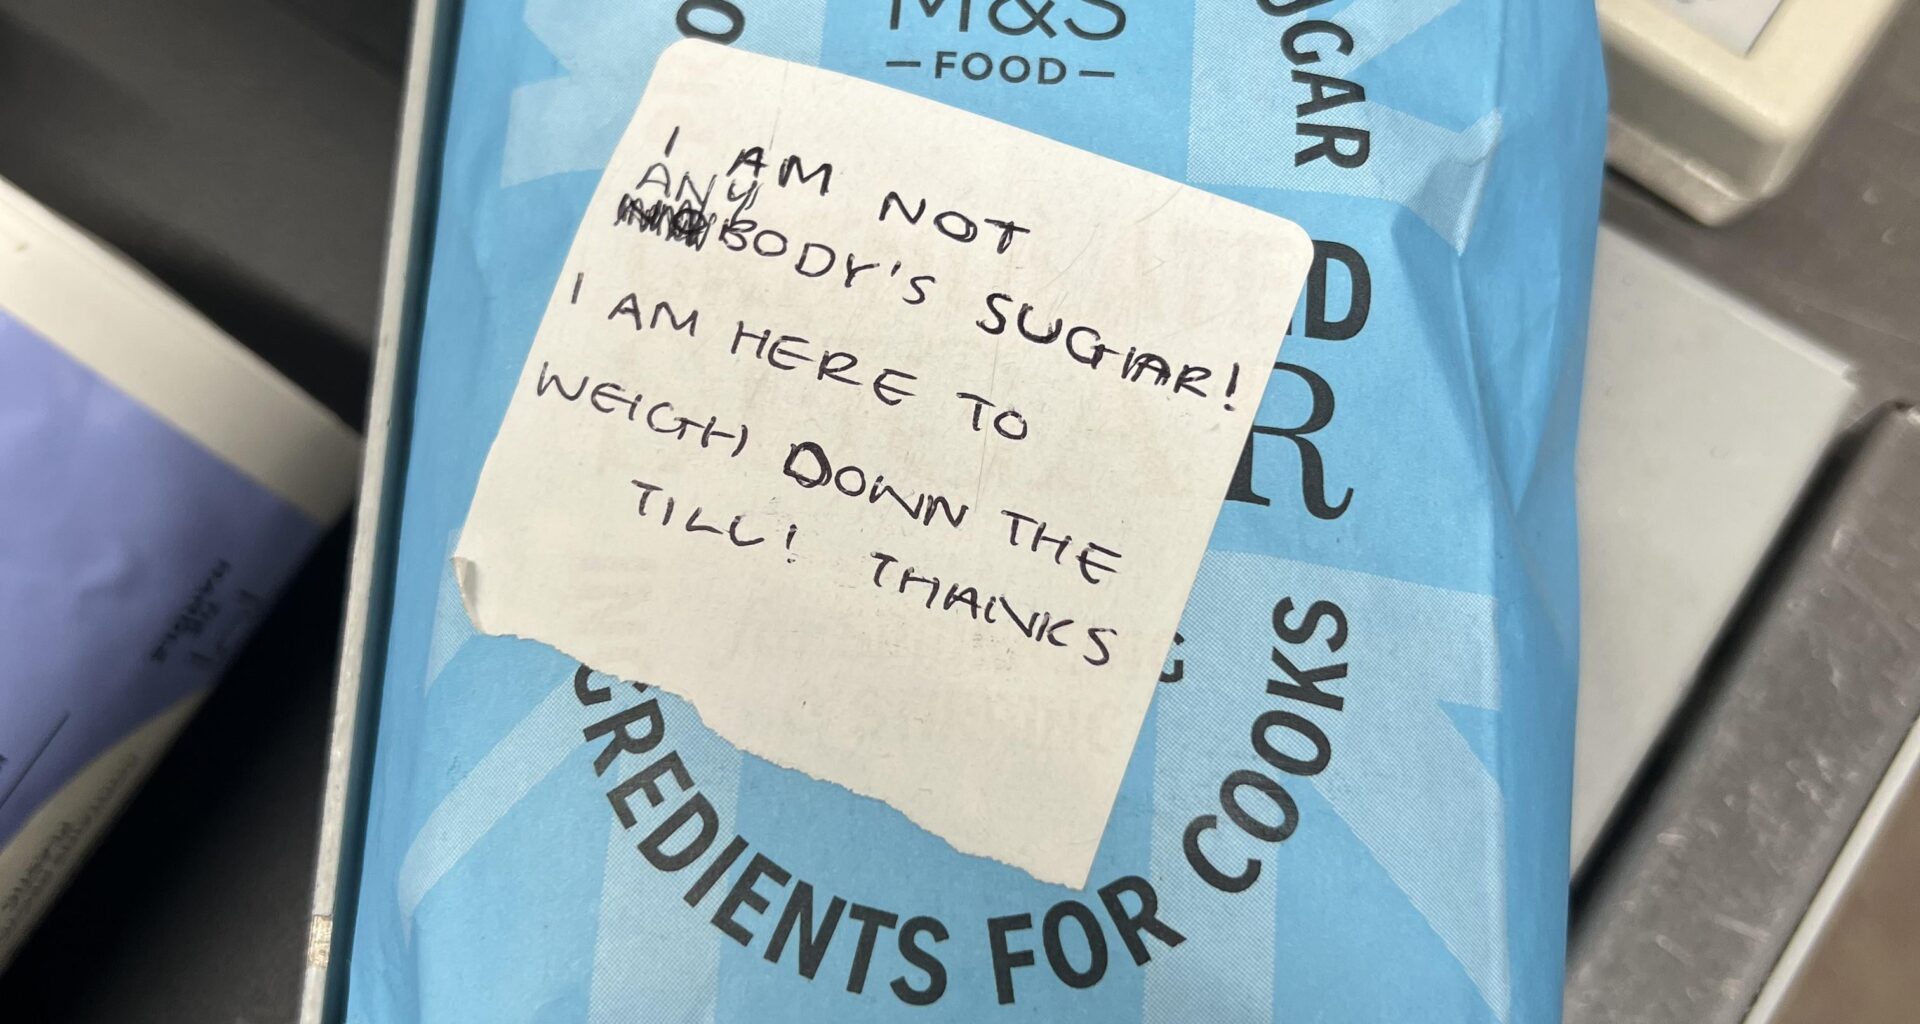 M&S
FOOD
GAR
D
R
I AM NOT
ANY
BODY'S SUGAR!
I AM HERE TO
WEIGH DOWN THE
TILL! THANKS
CREDIENTS FOR COOKS